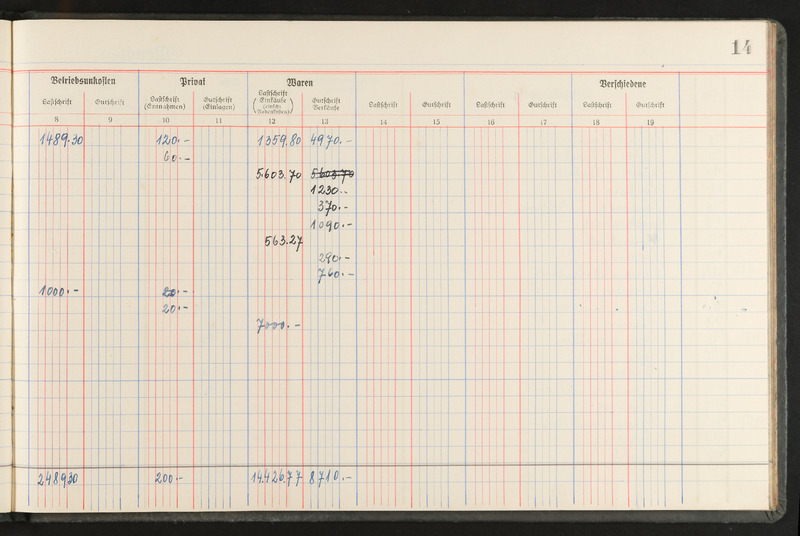 14
Betriebsunkosten Privat Waren Verschiedene
Lastschrift Gutschrift Lastschrift (Entnahmen) Gutschrift (Einlagen) Lastschrift (Einkäufe Gutschrift Verkäufe Lastschrift Gutschrift Lastschrift Gutschrift Lastschrift Gutschrift
8 9 10 11 12 13 14 15 16 17 18 19
1489.30 120.- 1359.80 4970.-
60.-
5.603.70 5.603.70
1230.-
370.-
1090.-
563.27
290.-
760.-
1000.- 20.-
20.-
7000.-
2489.30 200.- 14.426.77 8710.-